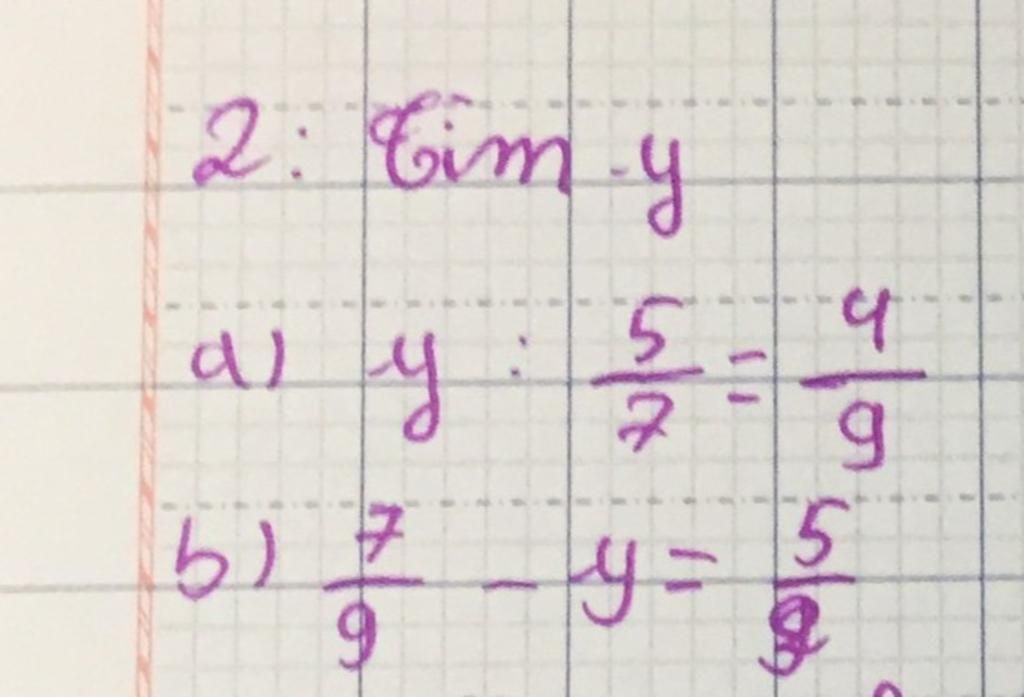 2: Tìm y
a) y : 5/7 = 4/9
b) 7/9 - y = 5/